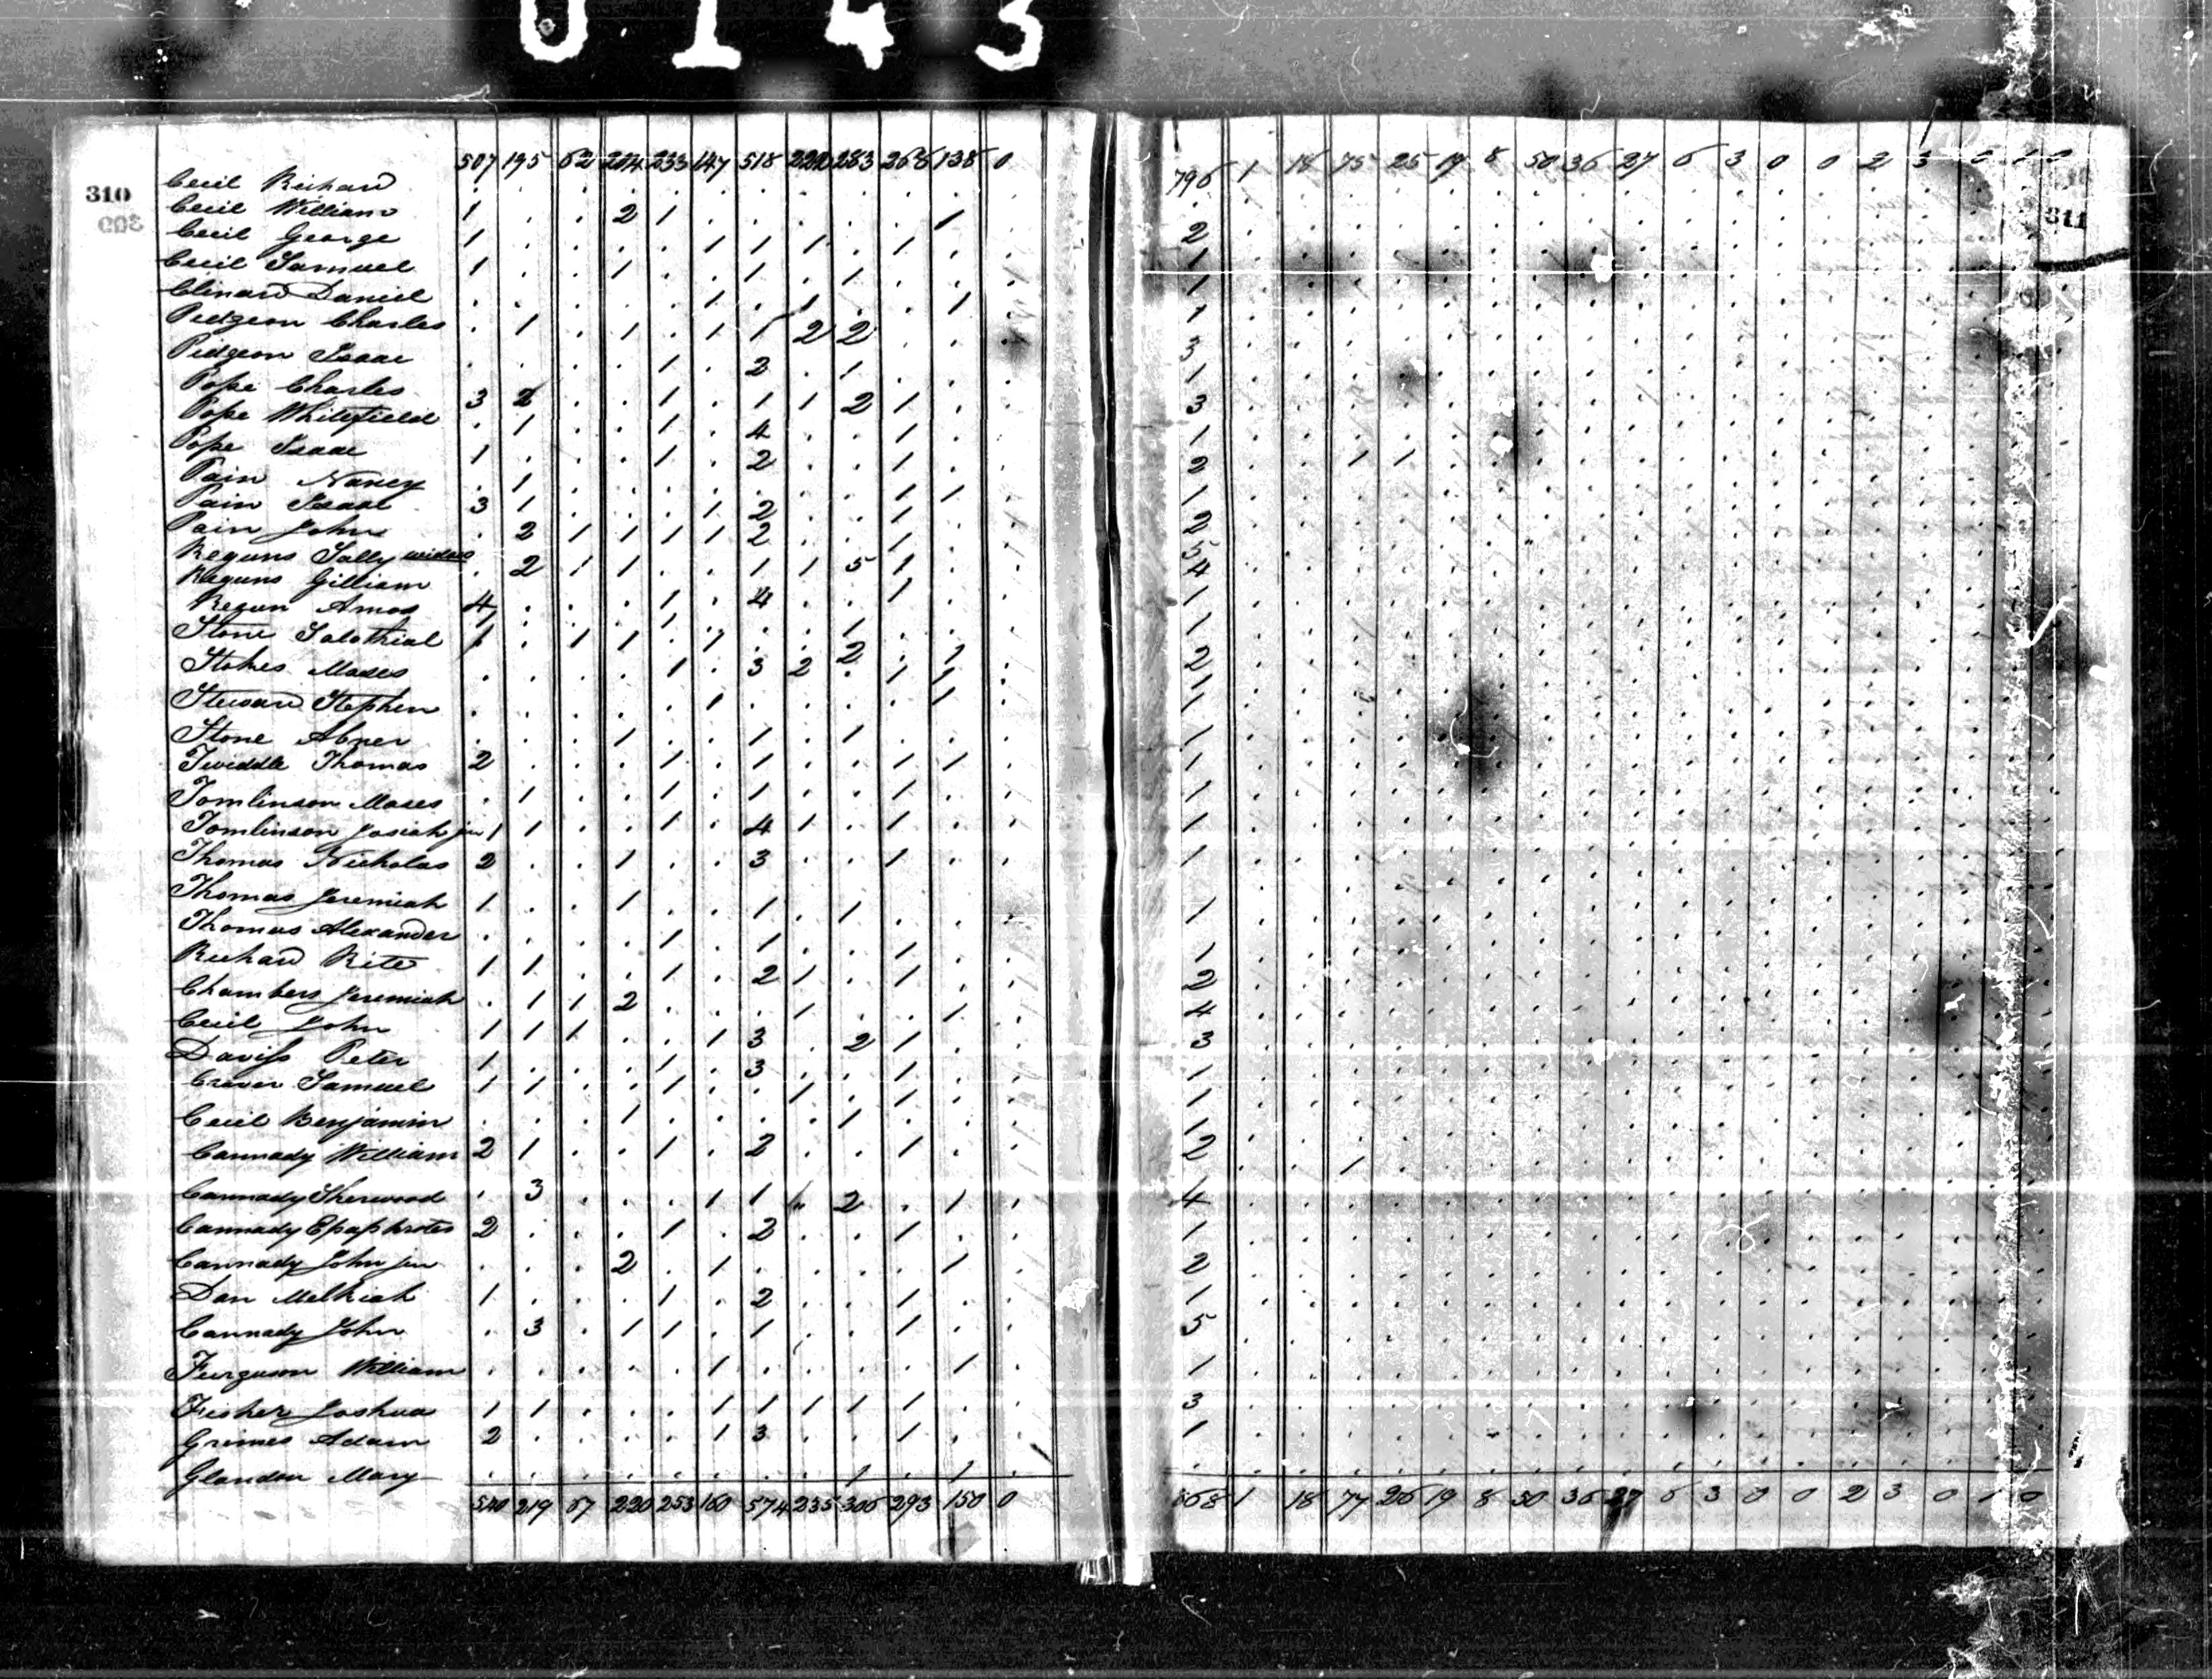 0143
310
507 195 62 204 233 147 518 220 283 268 138 0 796 1 18 75 25 19 8 50 36 27 6 3 0 0 2 3 0 1 0
311
Cecil Richard
Cecil William 1 . . 2 1 . . . . . 1 . 2
Cecil George 1 . . . . 1 1 1 . 1 . . 1
Cecil Samuel 1 . . 1 . . 1 . 1 . . . 1
Clinard Daniel . . . . . 1 . 1 . . 1 . 1
Pidgeon Charles . 1 . 1 . 1 1 2 2 . . . 3
Pidgeon Isaac . . . . 1 . 2 . 1 . . . 1
Pope Charles 3 2 . . 1 . 1 1 2 1 . . 3
Pope Whitefield . 1 . . 1 . 4 . . 1 . . 1
Pope Isaac 1 . . . 1 . 2 . . 1 . . 2 . . 1 1
Pain Nancy . 1 . . . . . . . 1 1 . 1
Pain Isaac 3 1 . . . 1 2 . . 1 . . 2
Pain John . 2 1 1 1 1 2 . . 1 . . 5
Reguns Sally widow . 2 1 1 . . 1 1 5 1 . . 4
Reguns Gilliam 4 . . . 1 . 4 . . 1 . . 1
Regun Amos
Stone Salathial 1 . 1 1 . 1 . . 2 . 1 . 2
Stokes Moses . . . . 1 . 3 2 . 1 1 . 1
Steward Stephen . . . . . 1 . . . . 1 .
Stone Abner . . . 1 . . 1 . 1 . . . 1
Twiddle Thomas 2 . . . 1 . 1 . . 1 1 . 1
Tomlinson Moses . 1 . . 1 . 1 . . 1 . . 1
Tomlinson Josiah jun 1 1 . . 1 . 4 1 . 1 . . 1
Thomas Nicholas 2 . . 1 . . 3 . . 1 . . 1
Thomas Jeremiah 1 . . 1 . . 1 . 1 . . . 1
Thomas Alexander . . . . 1 . 1 . . 1 . . 1
Richard Rite 1 1 . . 1 . 2 1 . 1 . . 2
Chambers Jeremiah . 1 1 2 . . . 1 . . 1 . 4
Cecil John 1 1 1 . . 1 3 . 2 1 . . 3
Daviss Peter 1 . . . 1 . 3 . . 1 . . 1
Craver Samuel 1 1 . . 1 . . 1 . 1 . . 1
Cecil Benjamin . . . 1 . . . . 1 . . . 1
Cannady William 2 1 . . 1 . 2 . . 1 . . 2 . . 1
Cannady Sherwood . 3 . . . 1 1 . 2 . 1 . 4
Cannady Epaphrotes 2 . . . 1 . 2 . . 1 . . 1
Cannady John jun . . . 2 . 1 . . . . 1 . 2
Dan Melkiah 1 . . . 1 . 2 . . 1 . . 1
Cannady John . 3 . 1 1 . 1 . . 1 . . 5
Furguson William . . . . . 1 . . . . 1 . 1
Fisher Joshua 1 1 . . . 1 1 1 1 1 . . 3
Grimes Adam 2 . . . . 1 3 . . 1 . . 1
Glandon Mary . . . . . . . . 1 . 1 . .
540 219 67 220 253 160 574 235 306 293 150 0 868 1 18 77 26 19 8 50 36 27 6 3 0 0 2 3 0 1 0